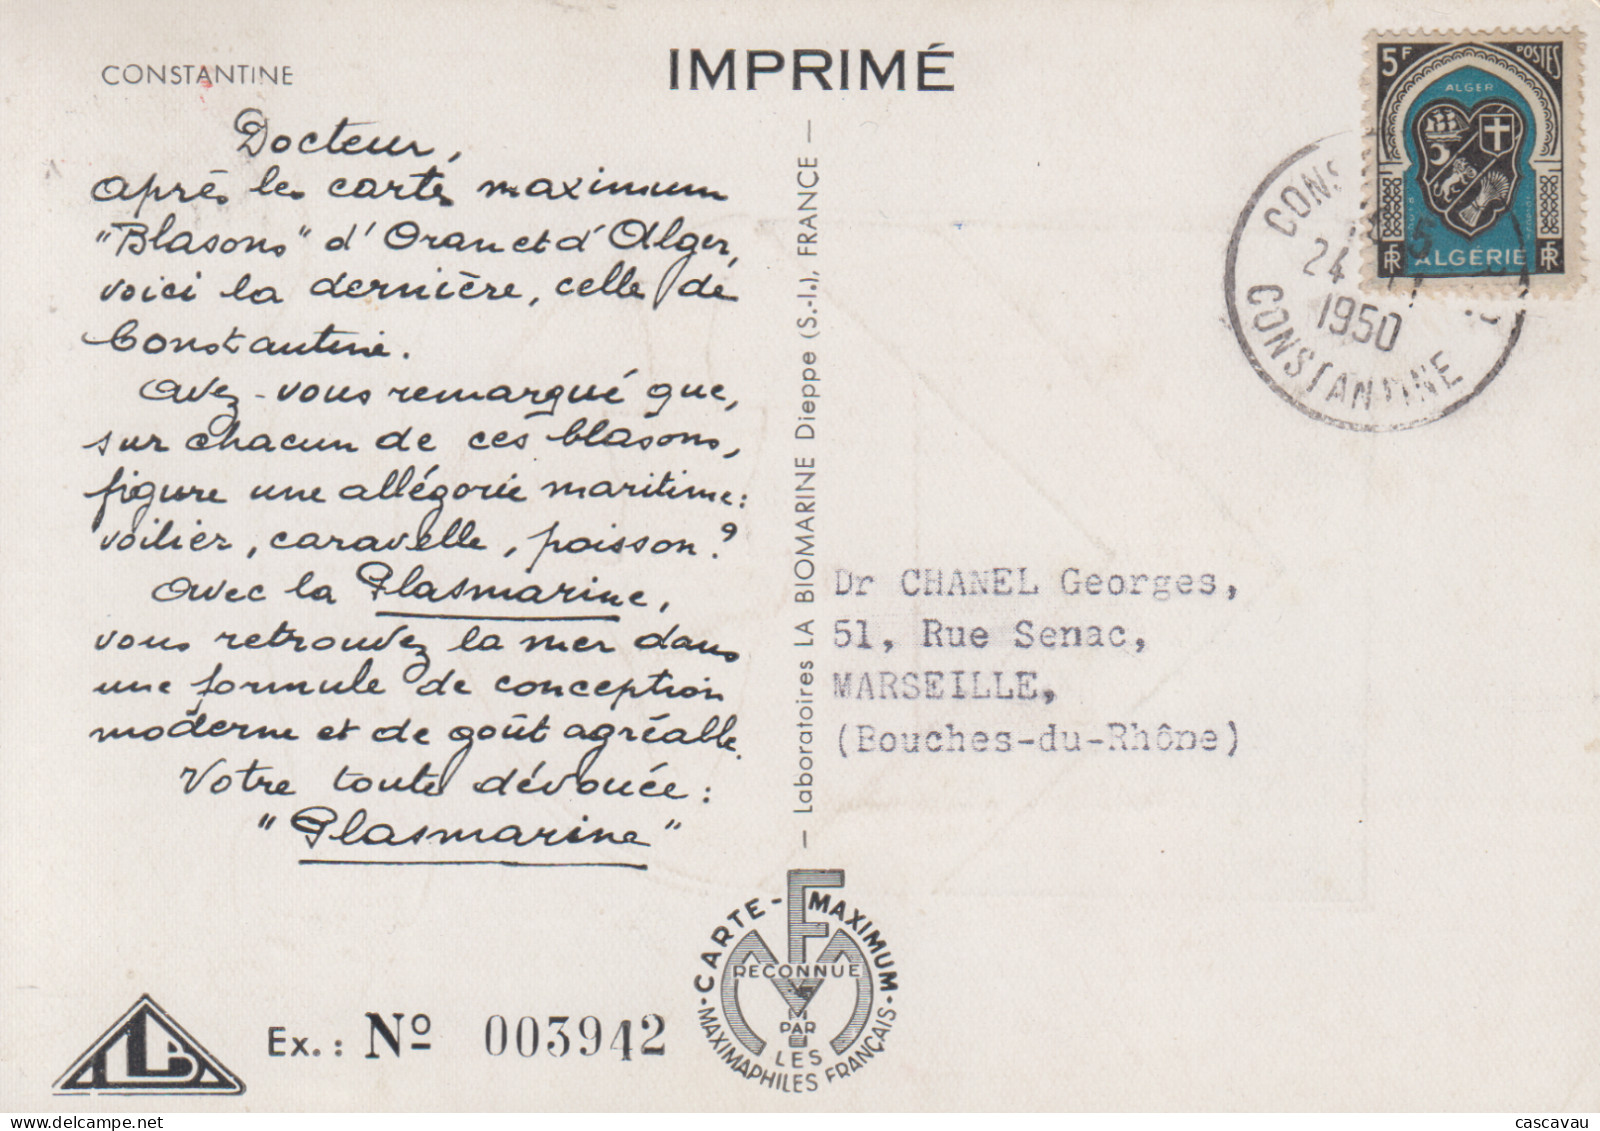 CONSTANTINE
IMPRIMÉ
Docteur,
après les cartes maximum
"Blasons" d'Oran et d'Alger,
voici la dernière, celle de
Constantine.
Avez-vous remarqué que,
sur chacun de ces blasons,
figure une allégorie maritime:
voilier, caravelle, poisson?
Avec la Plasmarine,
vous retrouvez la mer dans
une formule de conception
moderne et de goût agréable.
Votre toute dévouée:
"Plasmarine"
— Laboratoires LA BIOMARINE Dieppe (S.-I.), FRANCE —
5F POSTES
ALGER
RF ALGÉRIE RF
CONS
24
1950
CONSTANTINE
Dr CHANEL Georges,
51, Rue Senac,
MARSEILLE,
(Bouches-du-Rhône)
CARTE-MAXIMUM
RECONNUE
PAR
LES
MAXIMAPHILES FRANÇAIS
LB
Ex.: Nº 003942
cascavau